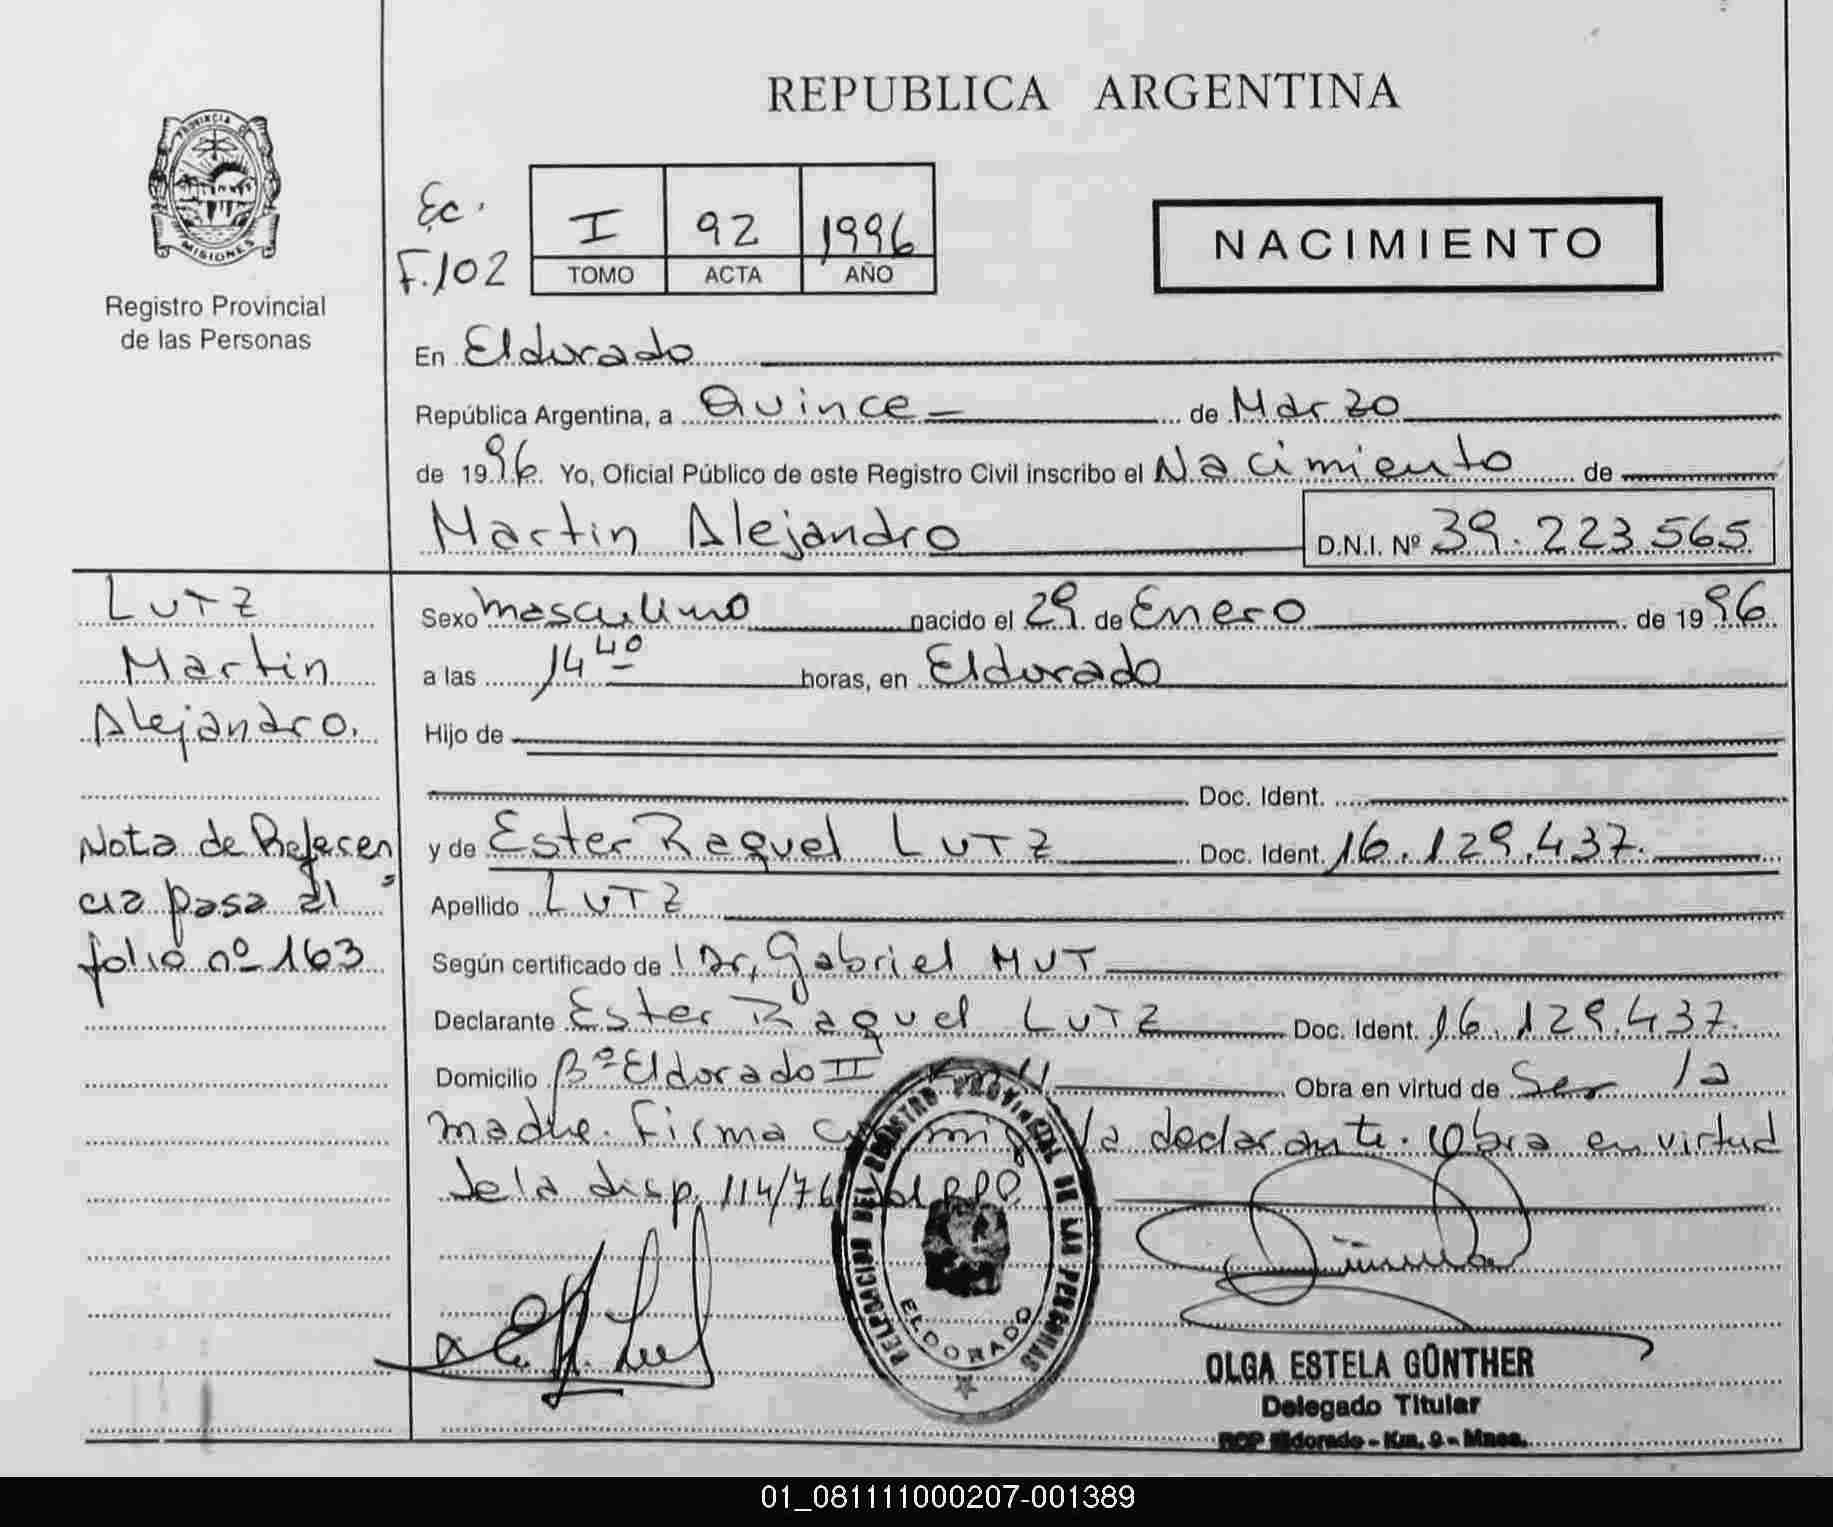 REPUBLICA ARGENTINA
PROVINCIA DE
MISIONES
Registro Provincial
de las Personas
Ec.
F.102
I 92 1996
TOMO ACTA AÑO
NACIMIENTO
En Eldorado
República Argentina, a Quince de Marzo
de 1996. Yo, Oficial Público de este Registro Civil inscribo el Nacimiento de
Martin Alejandro D.N.I. Nº 39.223.565
LUTZ
Martin
Alejandro.
Nota de Referen
cia pasa al
folio nº 163
Sexo masculino nacido el 29 de Enero de 1996
a las 14 40 horas, en Eldorado
Hijo de
Doc. Ident.
y de Ester Raquel LUTZ Doc. Ident. 16.129.437.
Apellido LUTZ
Según certificado de Dr, Gabriel MUT
Declarante Ester Raquel LUTZ Doc. Ident. 16.129.437.
Domicilio Bº Eldorado II Obra en virtud de Ser la
madre. Firma la declarante. Obra en virtud
de la disp. 114/76 del RPP.
DELEGACION DEL REGISTRO PROVINCIAL DE LAS PERSONAS
ELDORADO
OLGA ESTELA GÜNTHER
Delegado Titular
RCP Eldorado - Km. 9 - Mnes.
01_081111000207-001389